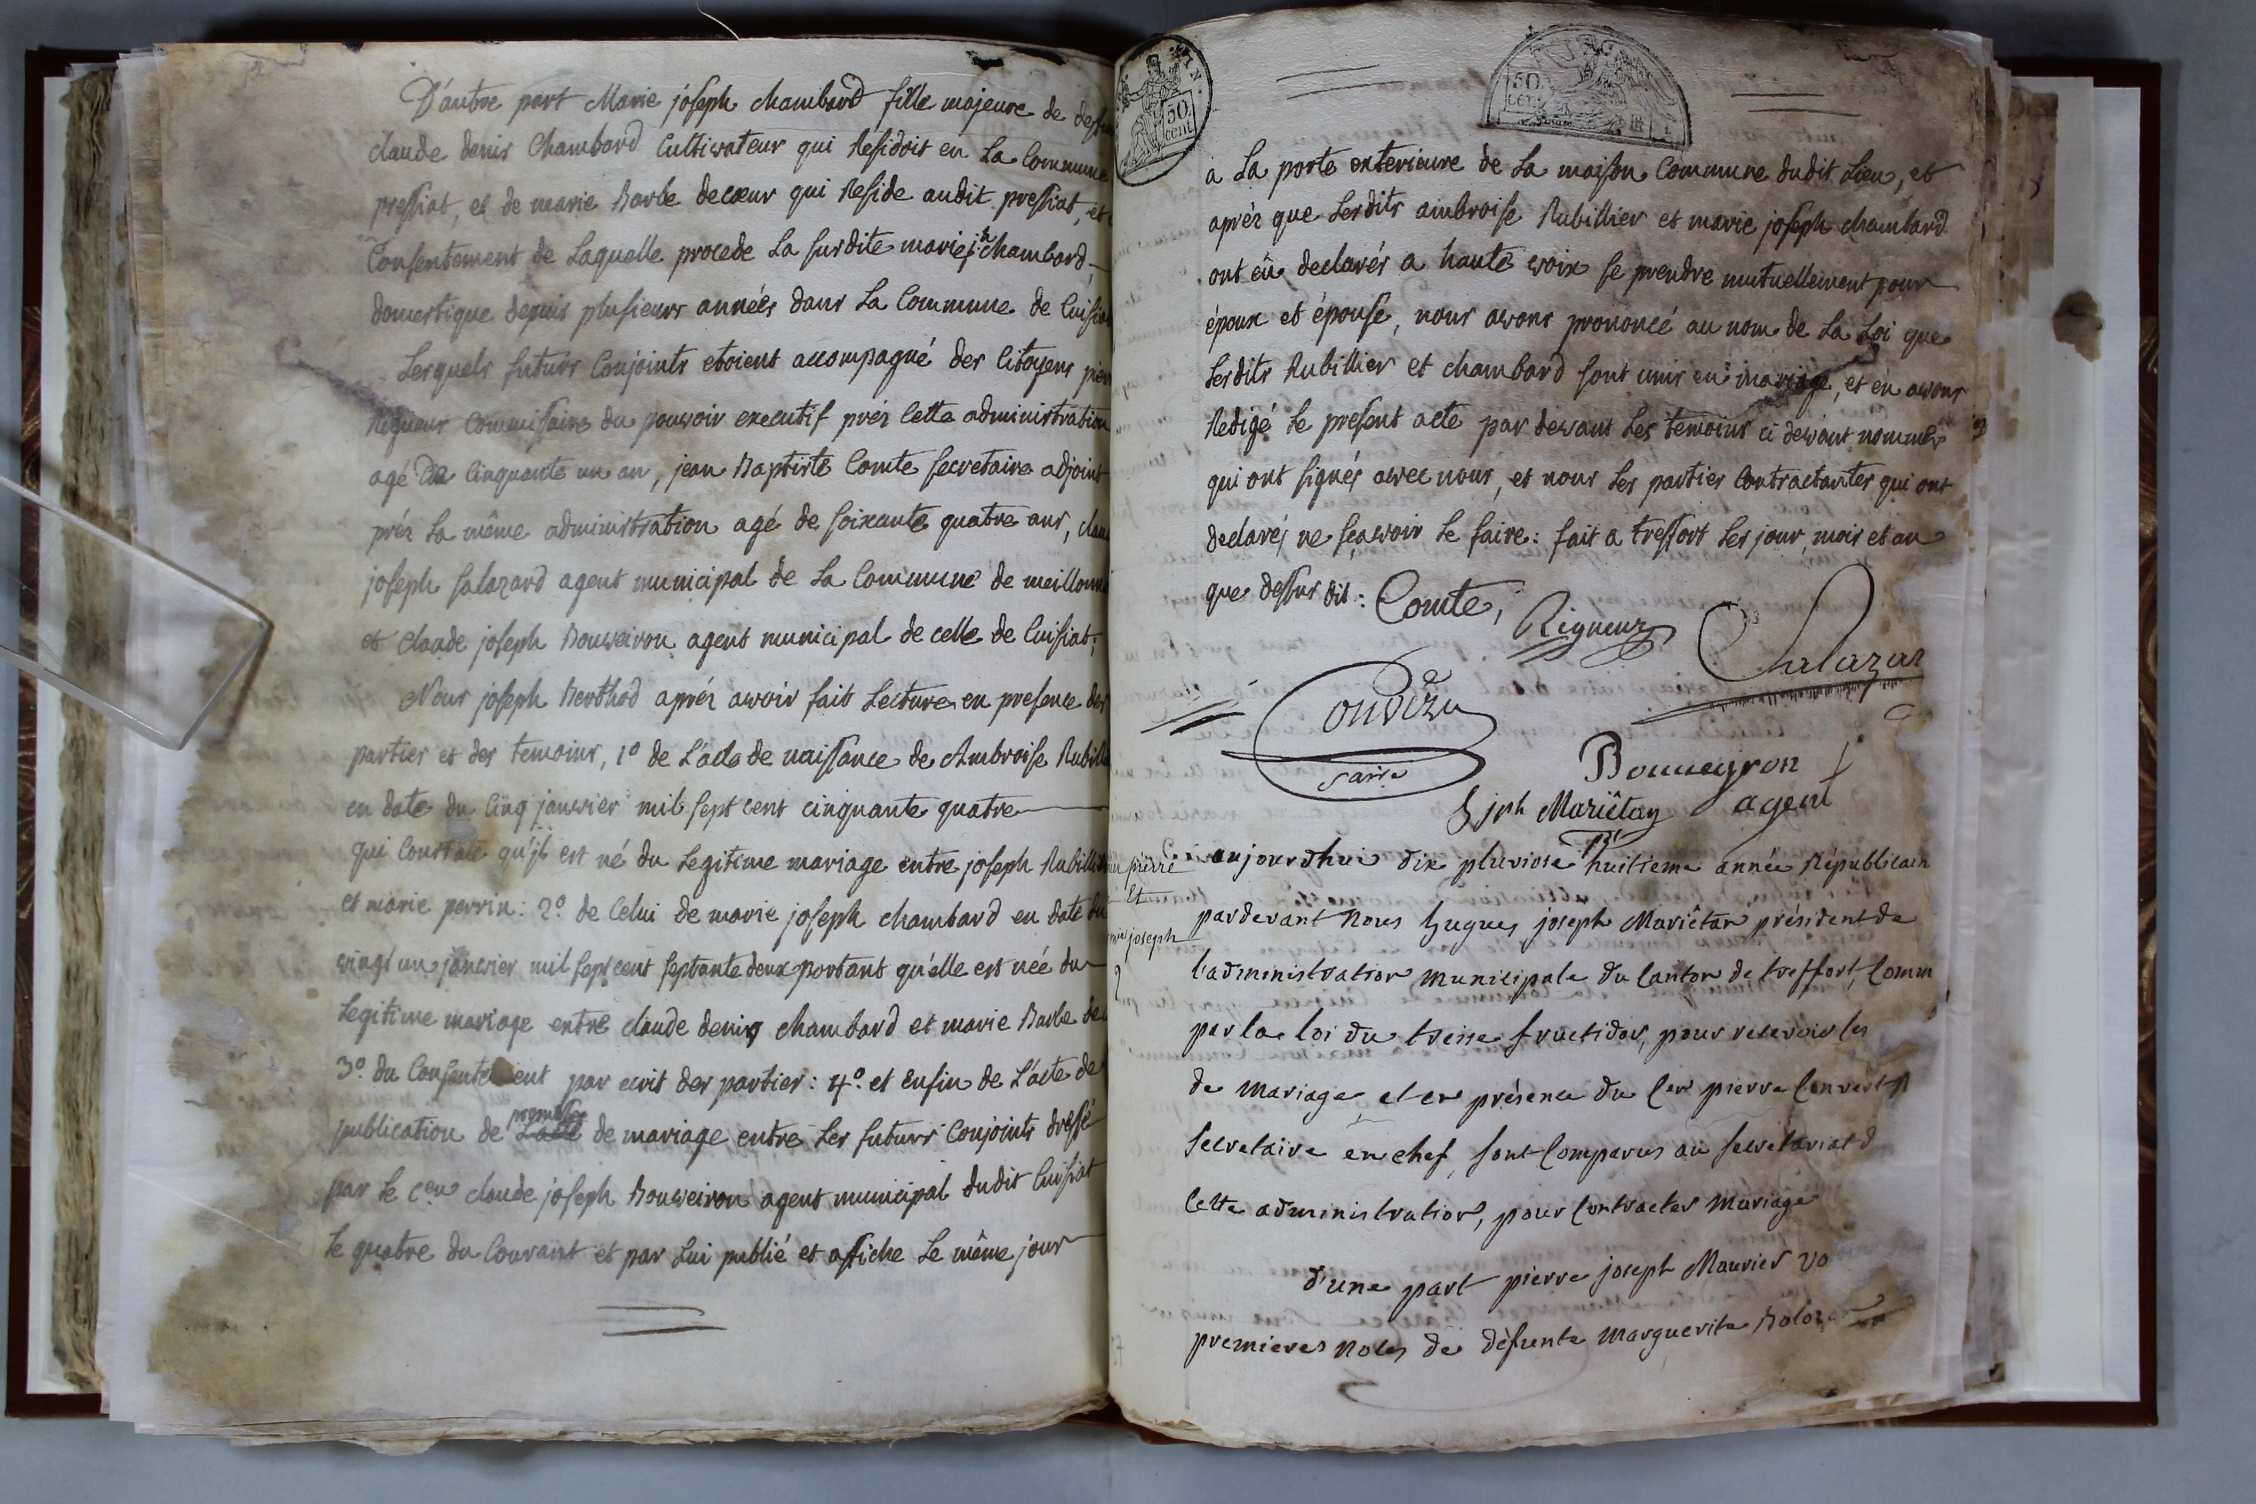 D'autre part Marie joseph chambard fille majeure de
claude denis Chambard Cultivateur qui Residoit en La Commune
pressiat, et de marie Barbe decœur qui Reside audit pressiat, et
Consentement de Laquelle procede La susdite marie j.h chambard
domestique depuis plusieurs années dans La Commune de Cuisiat
Lesquels futurs Conjoints etoient accompagné des Citoyens
Rigueur Commissaire du pouvoir executif près Cette administration
agé de Cinquante un an, jean Baptiste Comte secretaire adjoint
près La même administration agé de soixante quatre ans,
joseph salazard agent municipal de La Commune de
et claude joseph Bouveiron agent municipal de celle de Cuisiat;
Nous joseph Berthod après avoir fait Lecture en presence des
parties et des temoins, 1º de L'acte de naissance de Ambroise
en date du Cinq janvier mil sept cent cinquante quatre
qui Constate qu'jl est né du Legitime mariage entre joseph
et marie perrin: 2º de Celui de marie joseph chambard en date du
vingt un janvier mil sept cent septante deux portant qu'elle est née du
Legitime mariage entre claude denis chambard et marie Barbe
3º du Consentement par ecrit des parties: 4º et Enfin de L'acte de
publication de promesse de mariage entre Les futurs Conjoints dressé
par Le Cen claude joseph Bouveiron agent municipal dudit Cuisiat
Le quatre du Courant et par Lui publié et afiche Le même jour
50 cent
50
a La porte exterieure de La maison Commune dudit Lieu, et
après que Lesdits ambroise Rubillier et marie joseph chambard
ont eû declarés a haute voix se prendre mutuellement pour
époux et épouse, nous avons prononcé au nom de La Loi que
Lesdits Rubillier et chambard sont unis en mariage, et en avons
Redigé Le present acte par devant Les temoins ci devant nommés
qui ont signés avec nous, et nous Les parties Contractantes qui ont
declarés ne sçavoir Le faire: fait a tressort Les jour, mois et an
que dessus dit: Comte,
Rigueur
Salazar
Bouveyron
agent
jph Mariêtan
pierre
Et
joseph
aujourdhui dix pluviose huitieme année Républicain
pardevant nous hugues joseph Mariêtan président de
l'administration municipale du Canton de treffort,
par la loi du treise fructidor, pour recevoir les
de mariage et en présence du Cen pierre Convert
secretaire en chef, sont Comparus au secretariat d
Cette administration, pour Contracter mariage
d'une part pierre joseph Maurier
premieres noces de défunte Marguerite